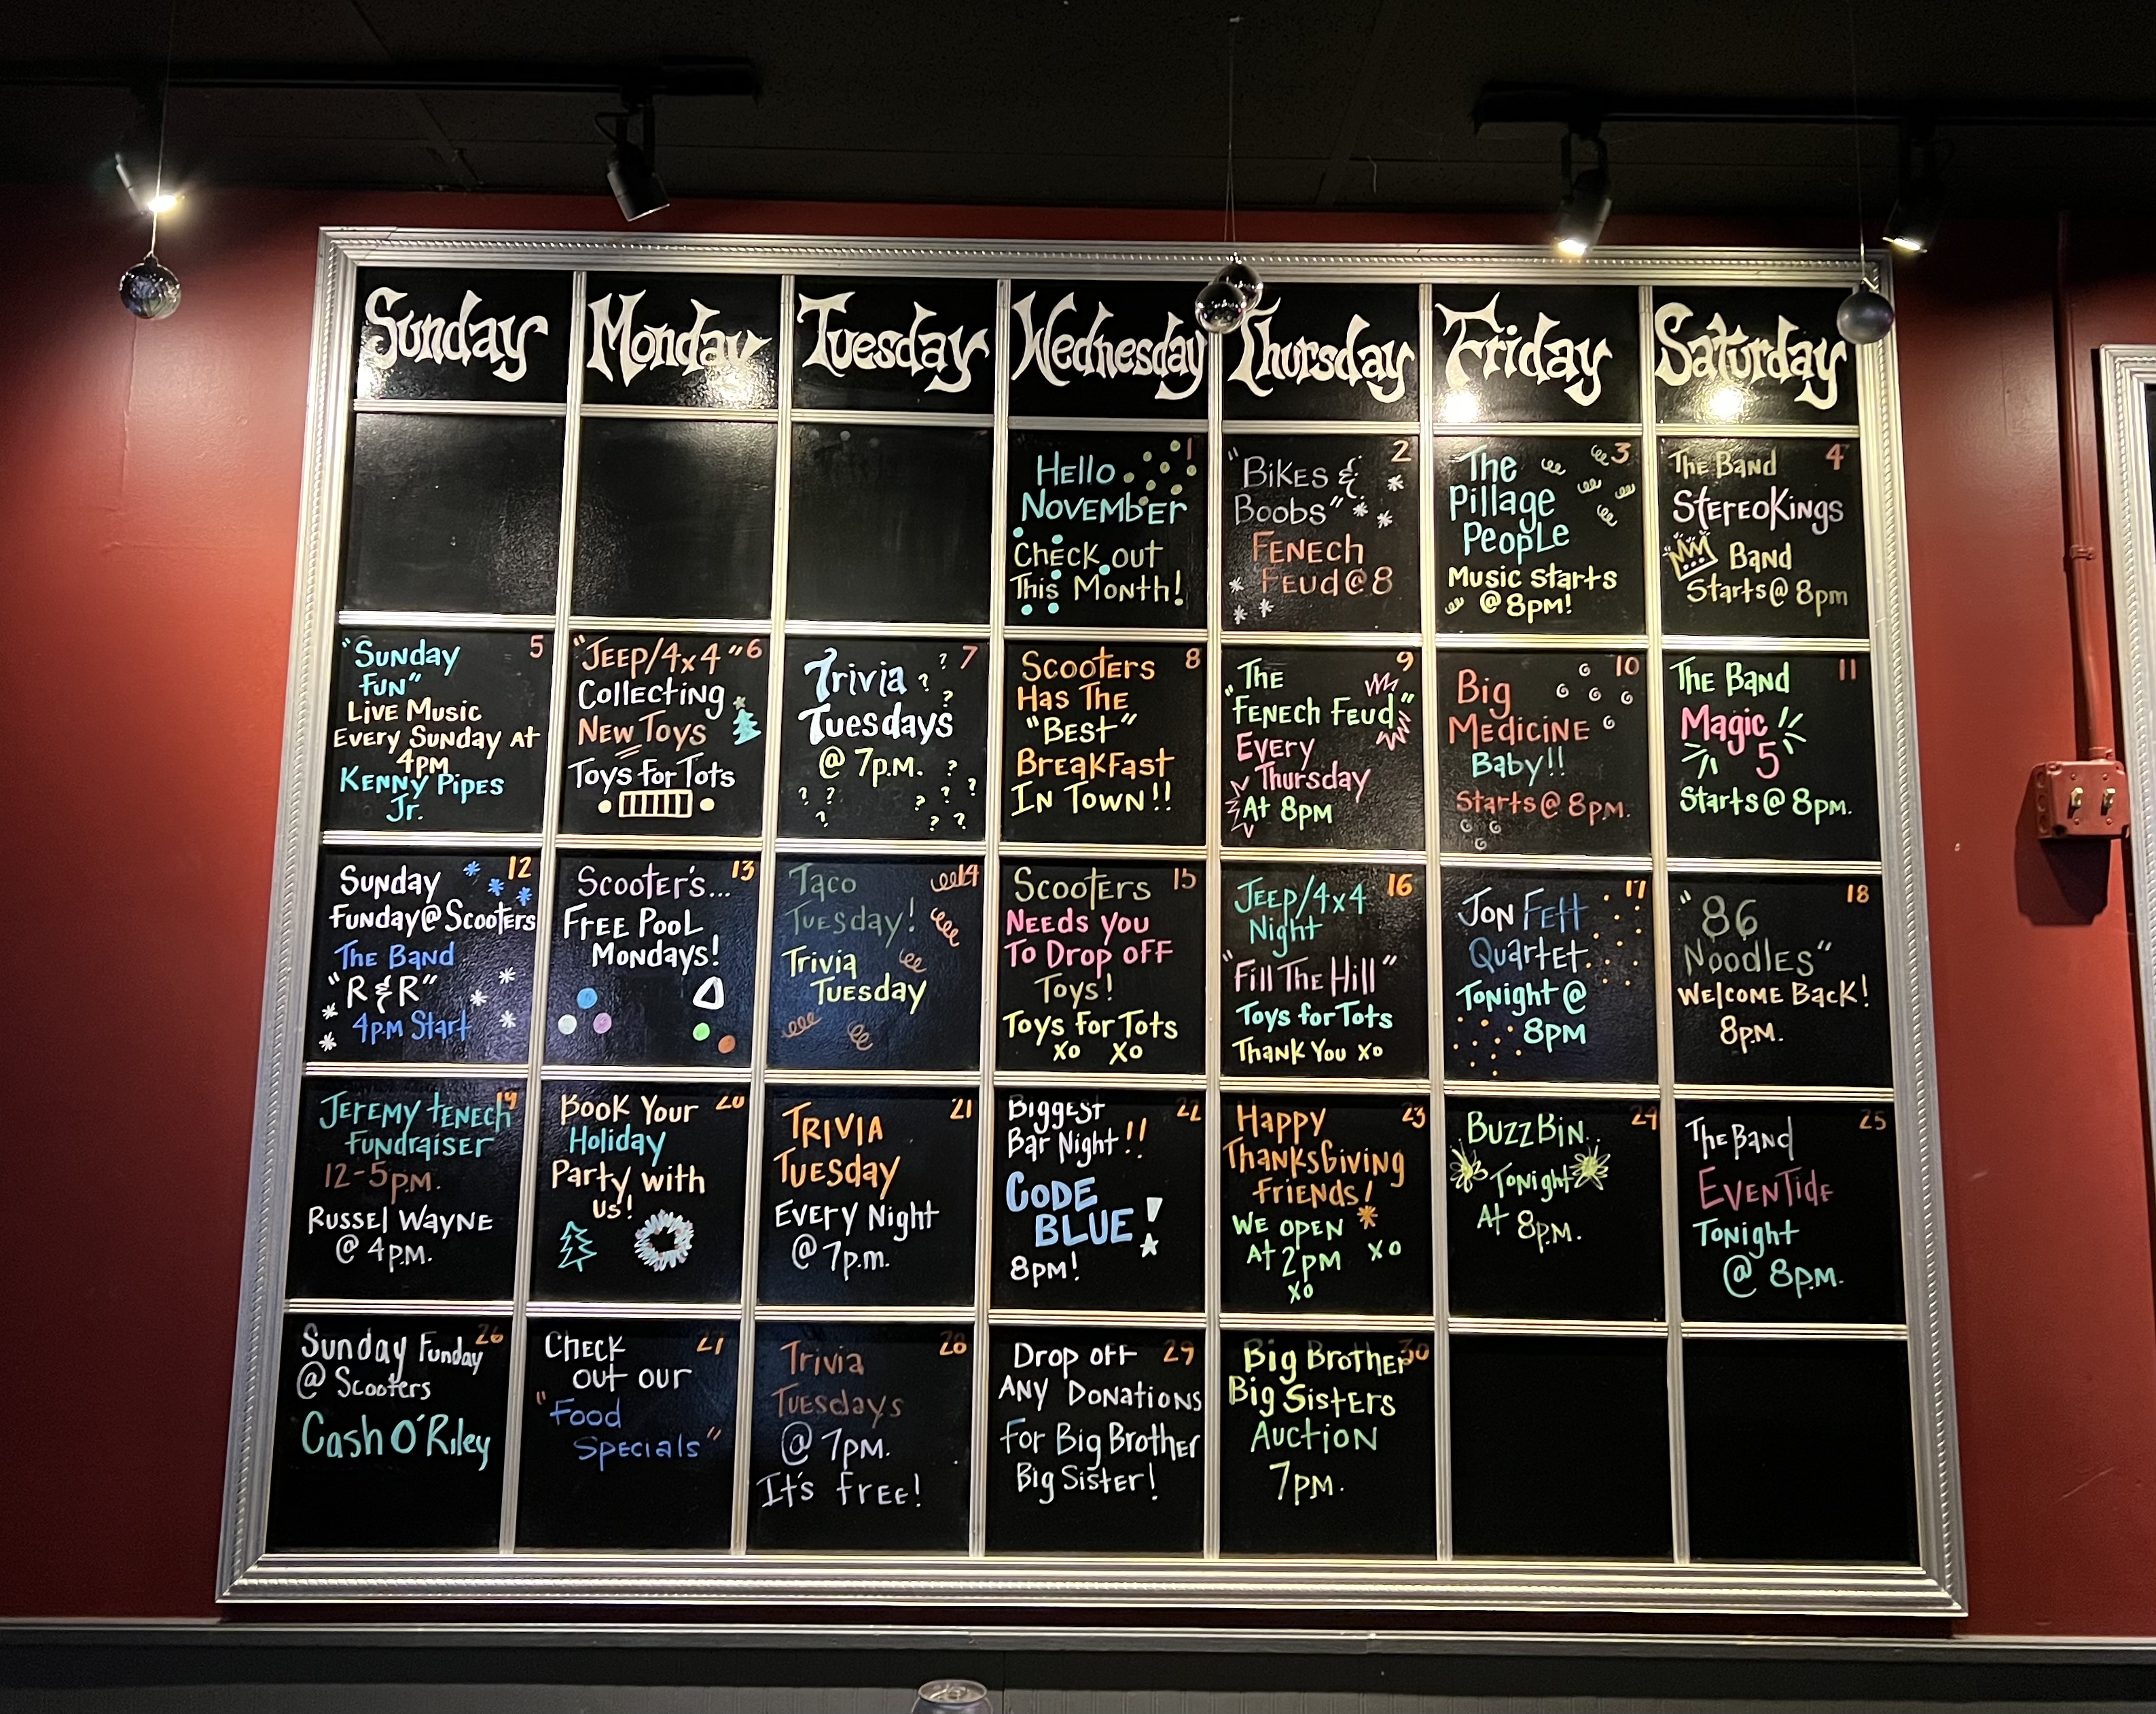 Sunday Monday Tuesday Wednesday Thursday Friday Saturday
1
Hello
November
Check out
This Month!
2
"Bikes &
Boobs"
Fenech
Feud@8
3
The
Pillage
People
Music starts
@ 8pm!
4
The Band
StereoKings
Band
Starts@ 8pm
5
"Sunday
Fun"
Live Music
Every Sunday At
4pm
Kenny Pipes
Jr.
6
"Jeep/4x4"
Collecting
New Toys
Toys for Tots
7
Trivia ? ?
Tuesdays ?
@ 7p.m. ?
? ? ? ? ?
? ? ?
8
Scooters
Has The
"Best"
Breakfast
In Town!!
9
"The
Fenech Feud"
Every
Thursday
At 8pm
10
Big
Medicine
Baby!!
Starts@ 8p.m.
11
The Band
Magic
5
Starts@ 8pm.
12
Sunday
Funday@Scooters
The Band
"R&R"
4p.m Start
13
Scooter's...
Free Pool
Mondays!
14
Taco
Tuesday!
Trivia
Tuesday
15
Scooters
Needs you
To Drop off
Toys!
Toys for Tots
xo xo
16
Jeep/4x4
Night
"Fill The Hill"
Toys for Tots
Thank You xo
17
Jon Fett
Quartet
Tonight @
8pm
18
"86
Noodles"
Welcome Back!
8p.m.
19
Jeremy Fenech
Fundraiser
12-5p.m.
Russel Wayne
@ 4p.m.
20
Book Your
Holiday
Party with
us!
21
Trivia
Tuesday
Every Night
@ 7p.m.
22
Biggest
Bar Night!!
Code
Blue!
8pm!
23
Happy
Thanksgiving
Friends!
We open
At 2pm xo
xo
24
BuzzBin
Tonight
At 8p.m.
25
The Band
Eventide
Tonight
@ 8p.m.
26
Sunday Funday
@ Scooters
Cash O'Riley
27
Check
out our
"Food
Specials"
28
Trivia
Tuesdays
@ 7pm.
It's free!
29
Drop off
Any Donations
For Big Brother
Big Sister!
30
Big Brother
Big Sisters
Auction
7pm.